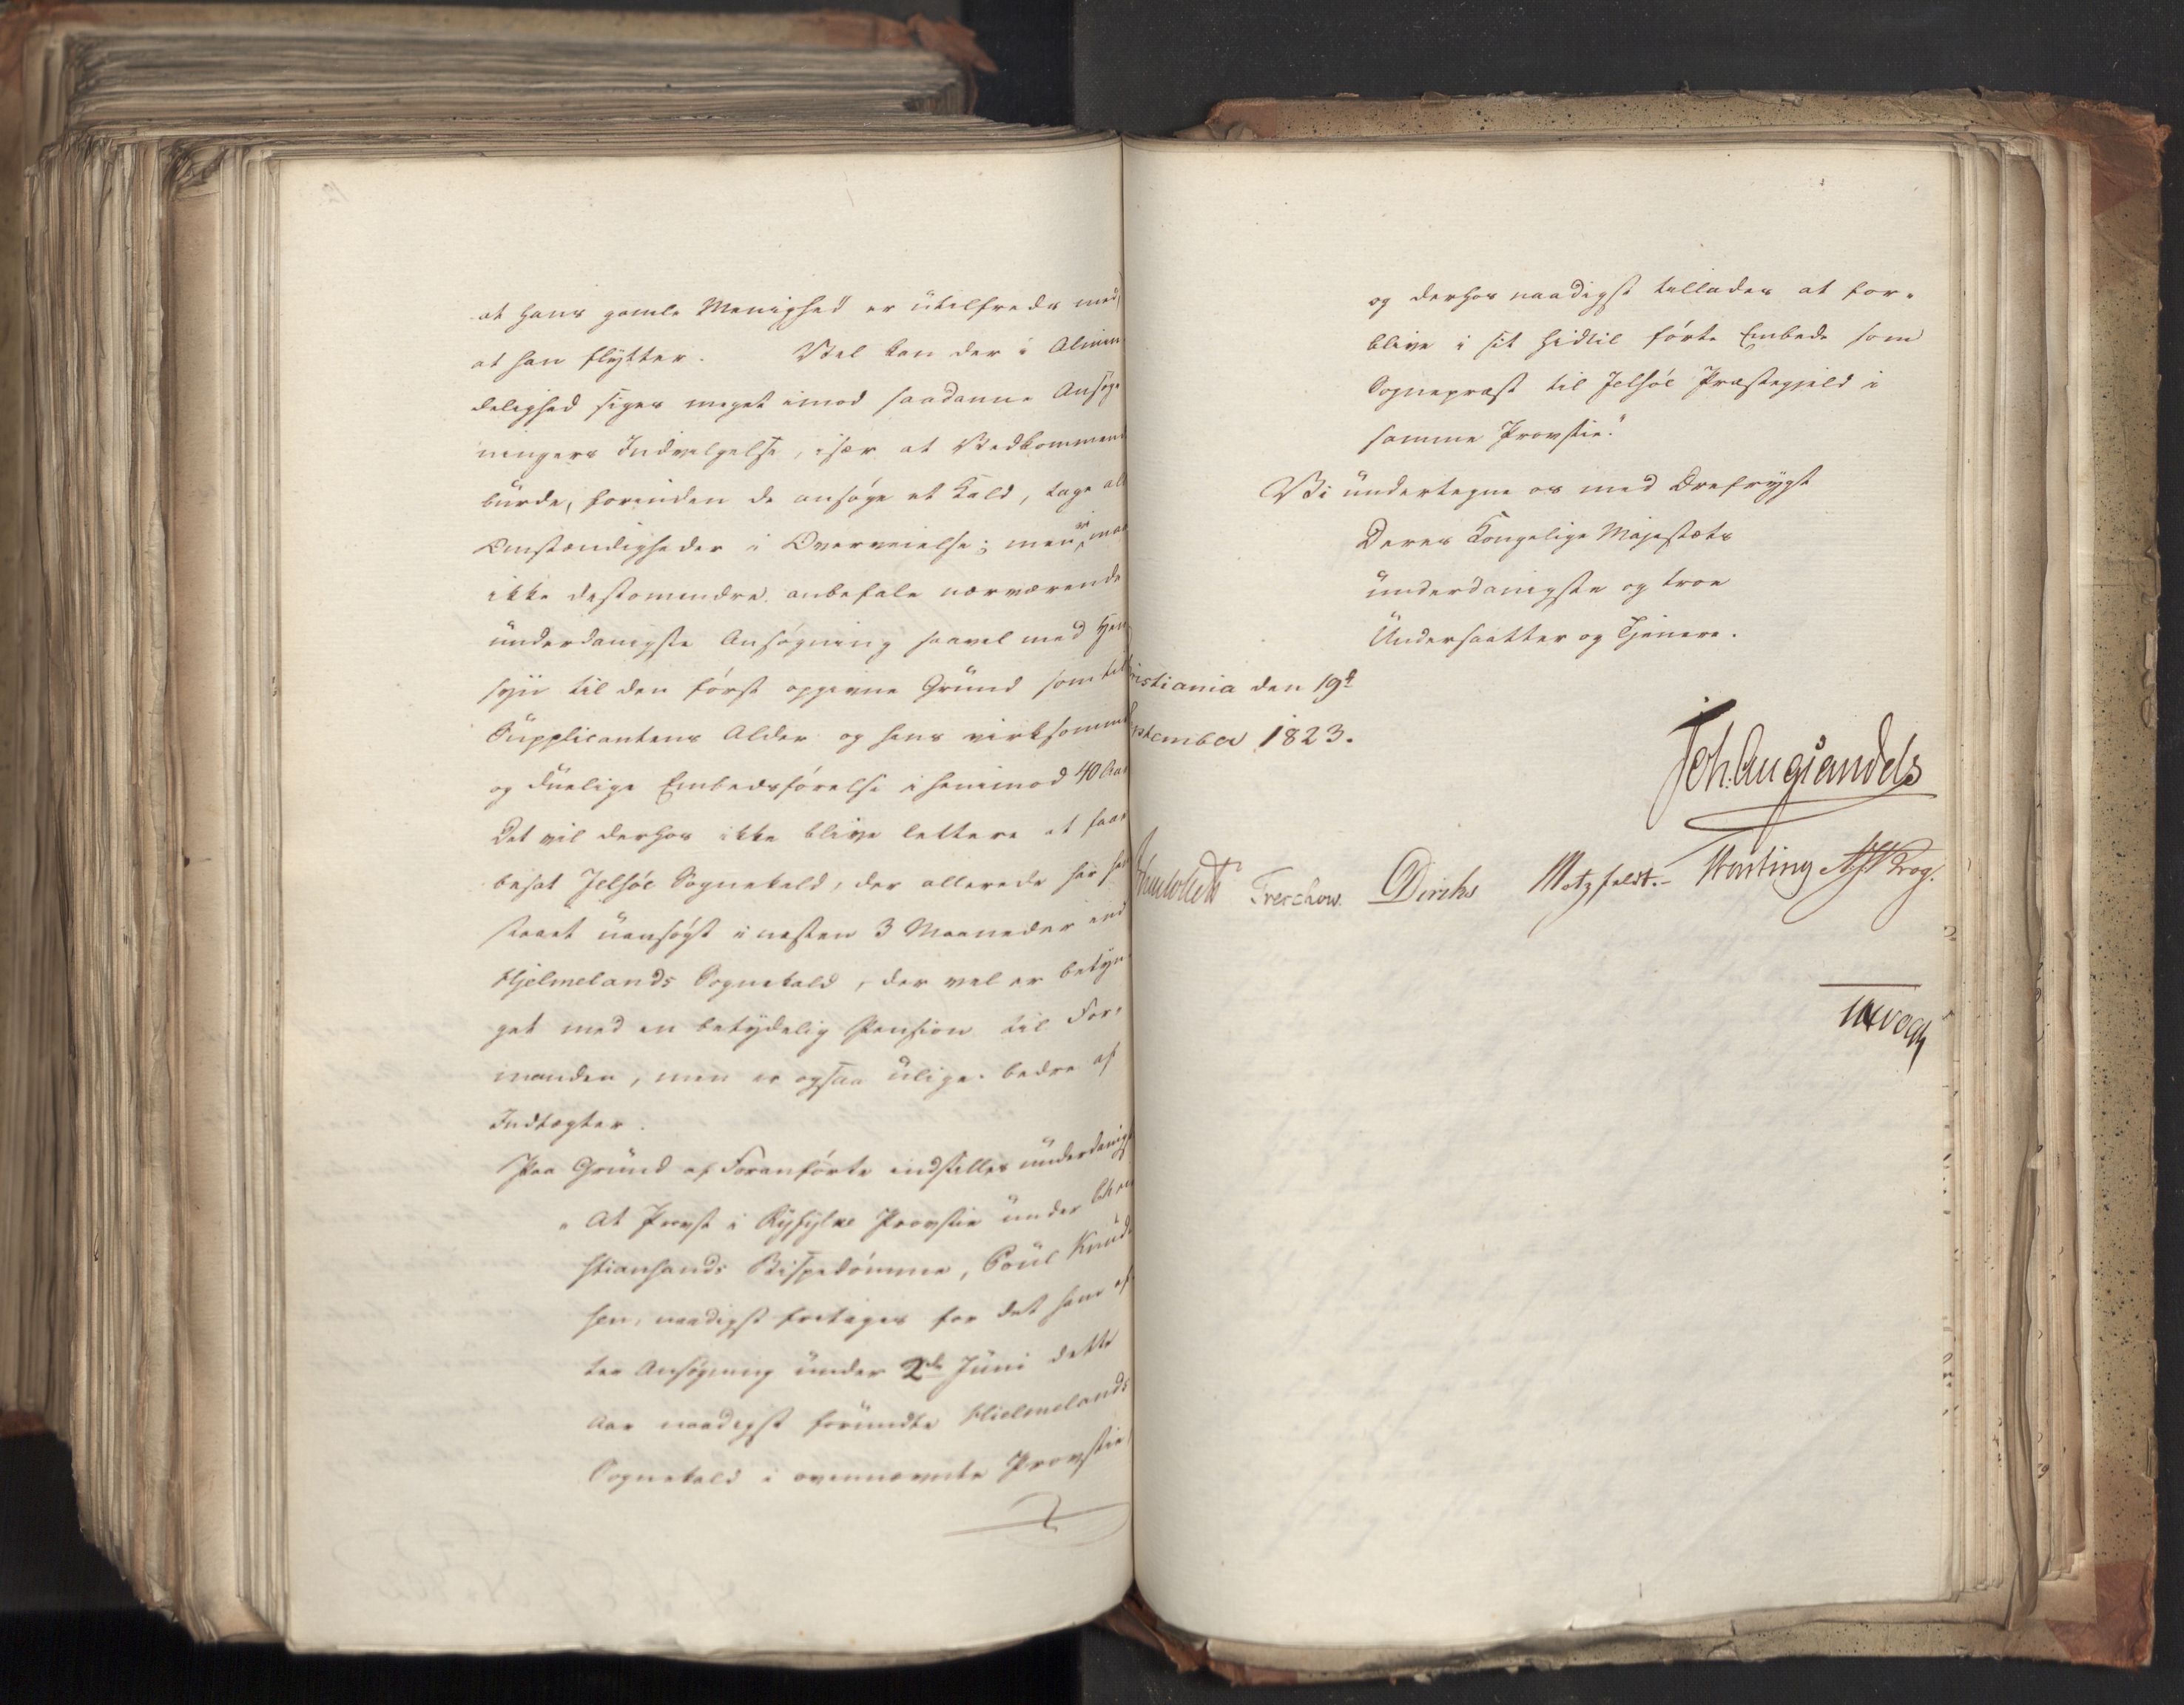 at hans gamle Menighed er utilfreds med,
at han flytter. Vel kan der i Almin
delighed siges meget imod saadanne Ansøg-
ningers Indvilgelse, især at Vedkommend
burde, forinden de ansøge et Kald, tage al
Omstændigheder i Overveielse; men vi maa
ikke destomindre anbefale nærværende
underdanigste Ansøgning saavel med Hen
syn til den først opgivne Grund som til
Supplicantens Alder og hans virksomme
og duelige Embedsførelse i henimod 40 Aar
Det vil derhos ikke blive lettere at faae
besat Jelsøe Sognekald, der allerede har
staaet uansøgt i næsten 3 Maaneder end
Hjelmelands Sognekald, der vel er betyn-
get med en betydelig Pension til For-
manden, men er ogsaa ulige bedre af
Indtægter.
Paa Grund af Foranførte indstilles underdanigst
"At Provst i Ryfylke Provstie under Chri
stiansands Bispedømme, Poul Knud
sen, naadigst fritages for det ham ef
ter Ansøgning under 2de Juni dette
Aar naadigst forundte Hielmelands
Sognekald i ovennævnte Provstie,
og derhos naadigst tillades at for-
blive i sit hidtil førte Embede som
Sognepræst til Jelsøe Præstegjeld i
samme Provstie."
Vi undertegne os med Ærefrygt
Deres Kongelige Majestæts
underdanigste og troe
Undersaatter og Tjenere.
ristiania den 19d
ptember 1823.
Joh. Aug Sandels
Treschow. Diriks Motzfeldt. Krog.